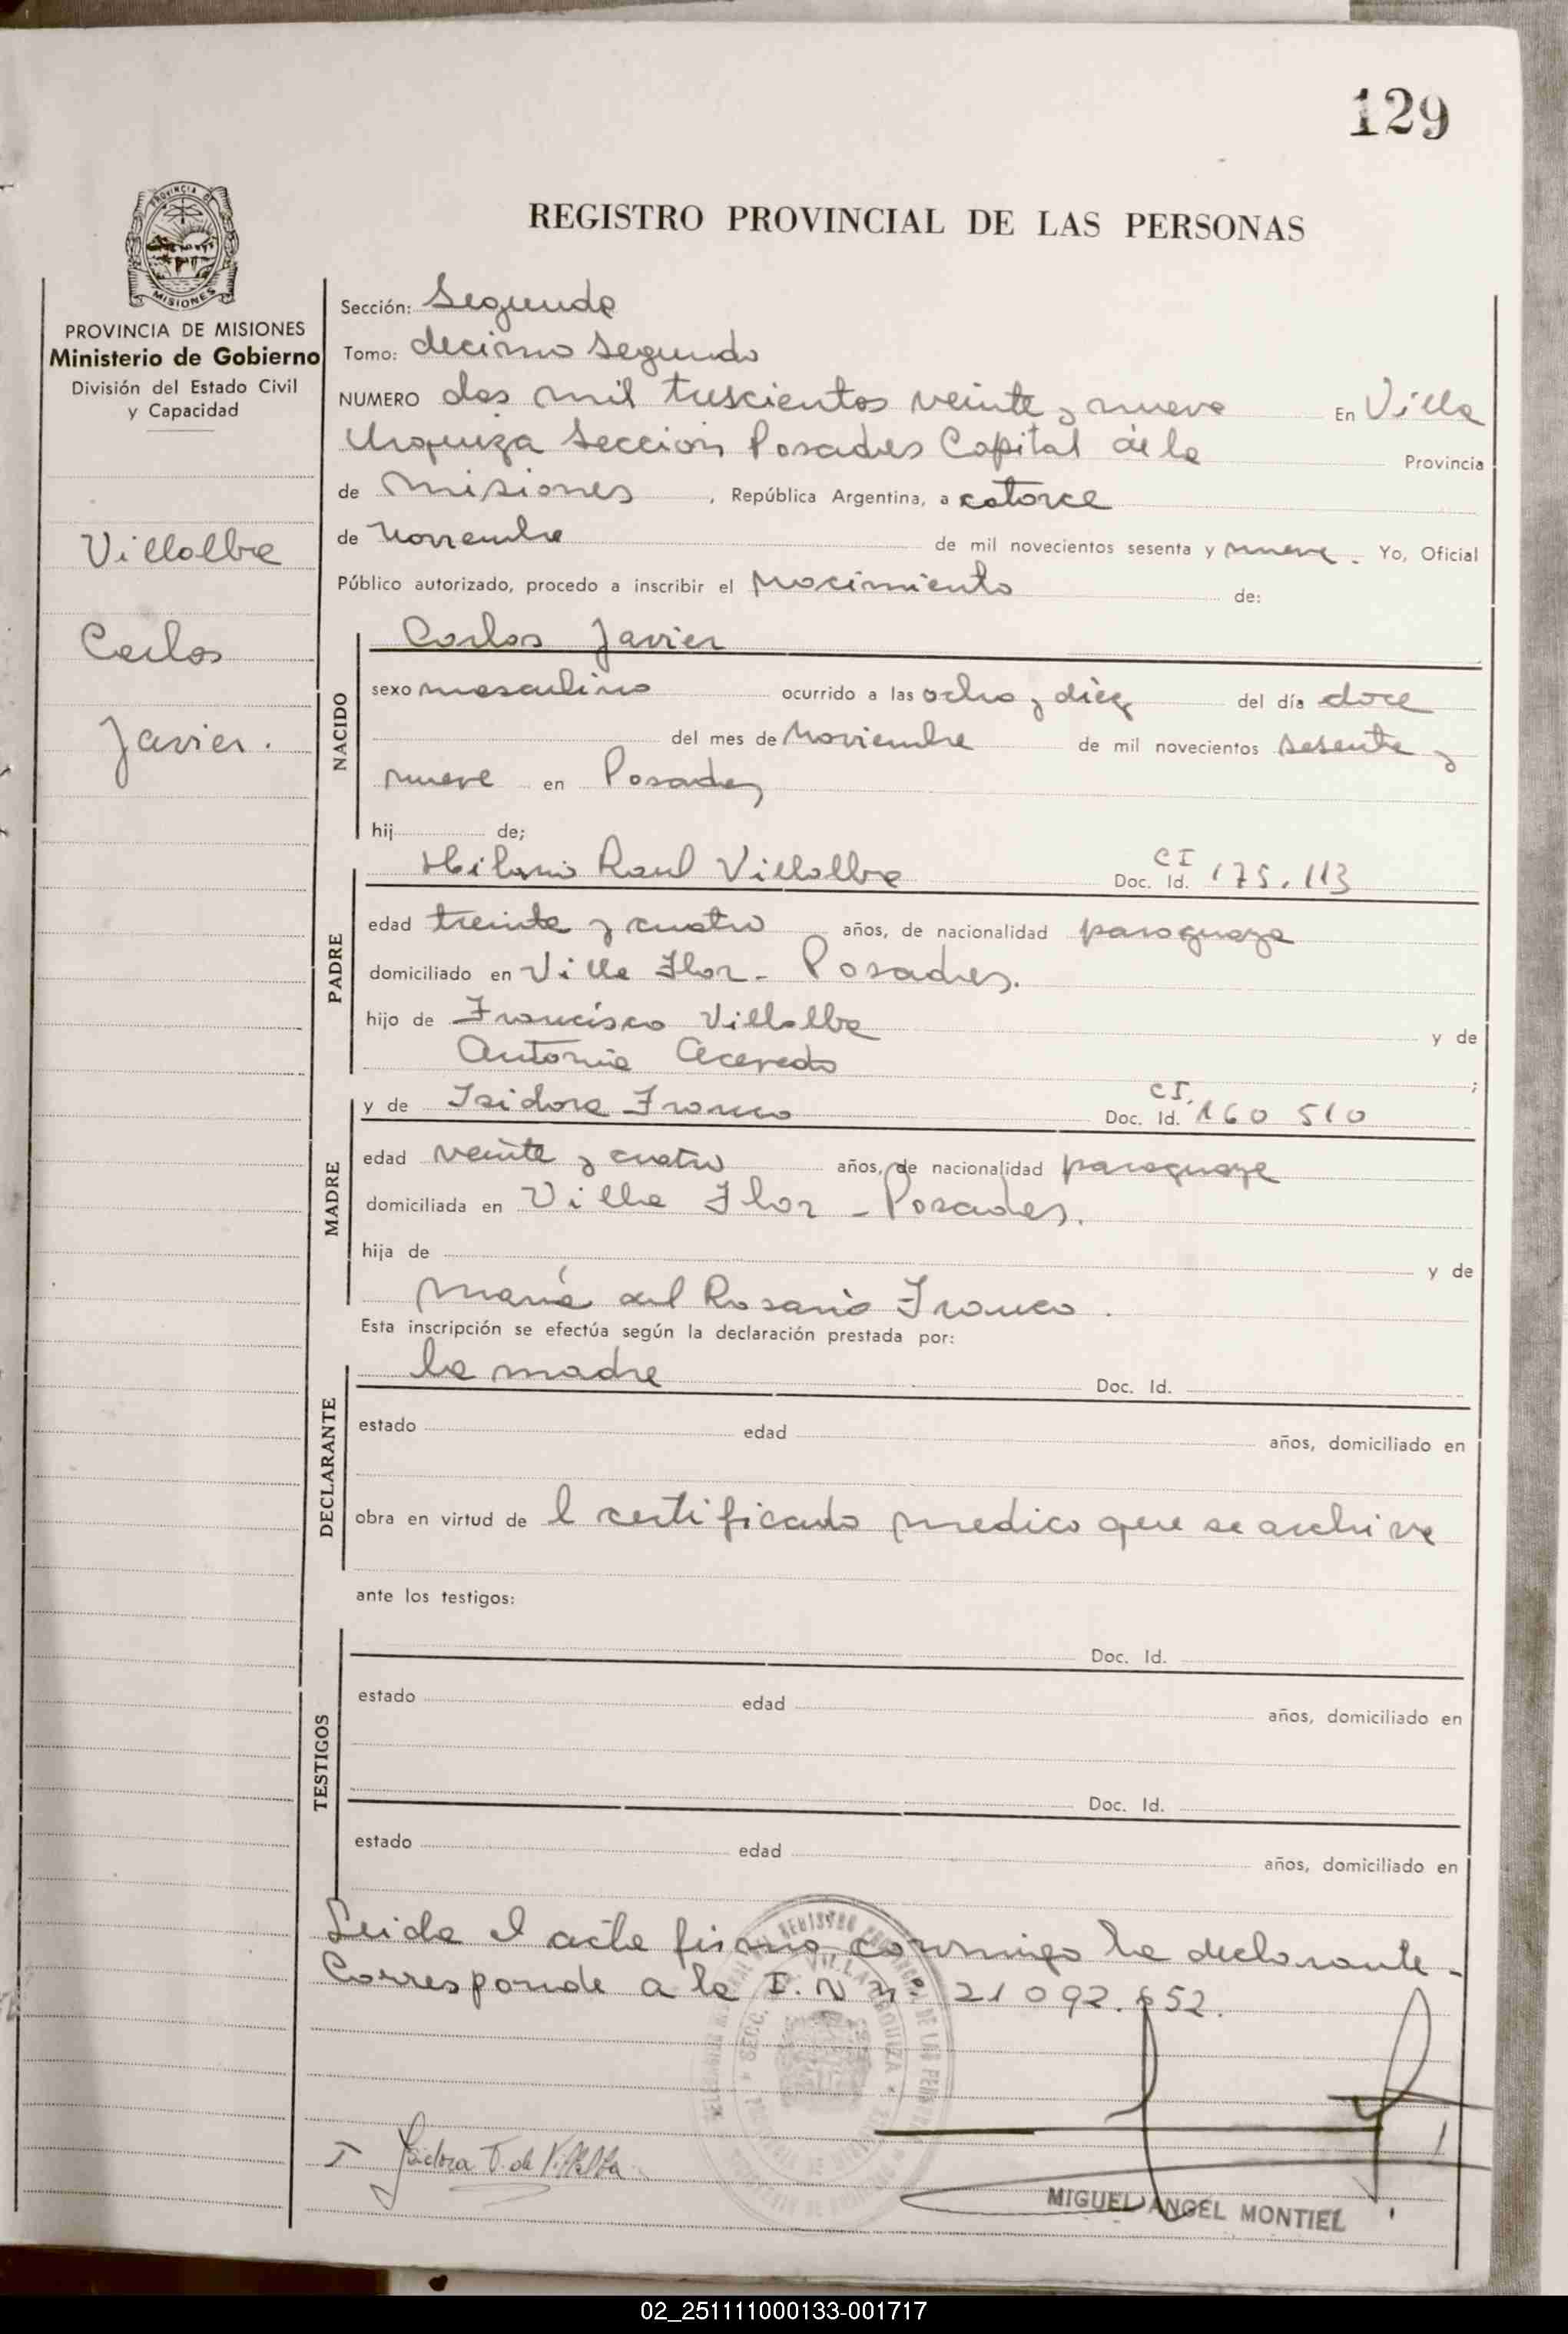 129
REGISTRO PROVINCIAL DE LAS PERSONAS
PROVINCIA
MISIONES
PROVINCIA DE MISIONES
Ministerio de Gobierno
División del Estado Civil
y Capacidad
Villalba
Carlos
Javier.
Sección: Segunda
Tomo: decimo segundo
NUMERO dos mil trescientos veinte y nueve En Villa
Urquiza Seccion Posadas Capital de la Provincia
de Misiones, República Argentina, a catorce
de Noviembre de mil novecientos sesenta y nueve. Yo, Oficial
Público autorizado, procedo a inscribir el Nacimiento de:
NACIDO
Carlos Javier
sexo masculino ocurrido a las ocho y diez del día doce
del mes de Noviembre de mil novecientos sesenta y
nueve en Posadas
hij de;
PADRE
Hilario Raul Villalba Doc. Id. CI 175.113
edad treinta y cuatro años, de nacionalidad paraguaya
domiciliado en Villa Flor - Posadas.
hijo de Francisco Villalba y de
Antonia Acevedo ;
MADRE
y de Isidora Franco Doc. Id. CI. 160 510
edad veinte y cuatro años, de nacionalidad paraguaya
domiciliada en Villa Flor - Posadas.
hija de y de
María del Rosario Franco.
Esta inscripción se efectúa según la declaración prestada por:
DECLARANTE
la madre Doc. Id.
estado edad años, domiciliado en
obra en virtud de l certificado medico que se archiva
ante los testigos:
TESTIGOS
Doc. Id.
estado edad años, domiciliado en
Doc. Id.
estado edad años, domiciliado en
Leida el acta firma conmigo la declarante -
Corresponde a la I. N nº 21 092.652.
Isidora F. de Villalba
MIGUEL ANGEL MONTIEL
02_251111000133-001717